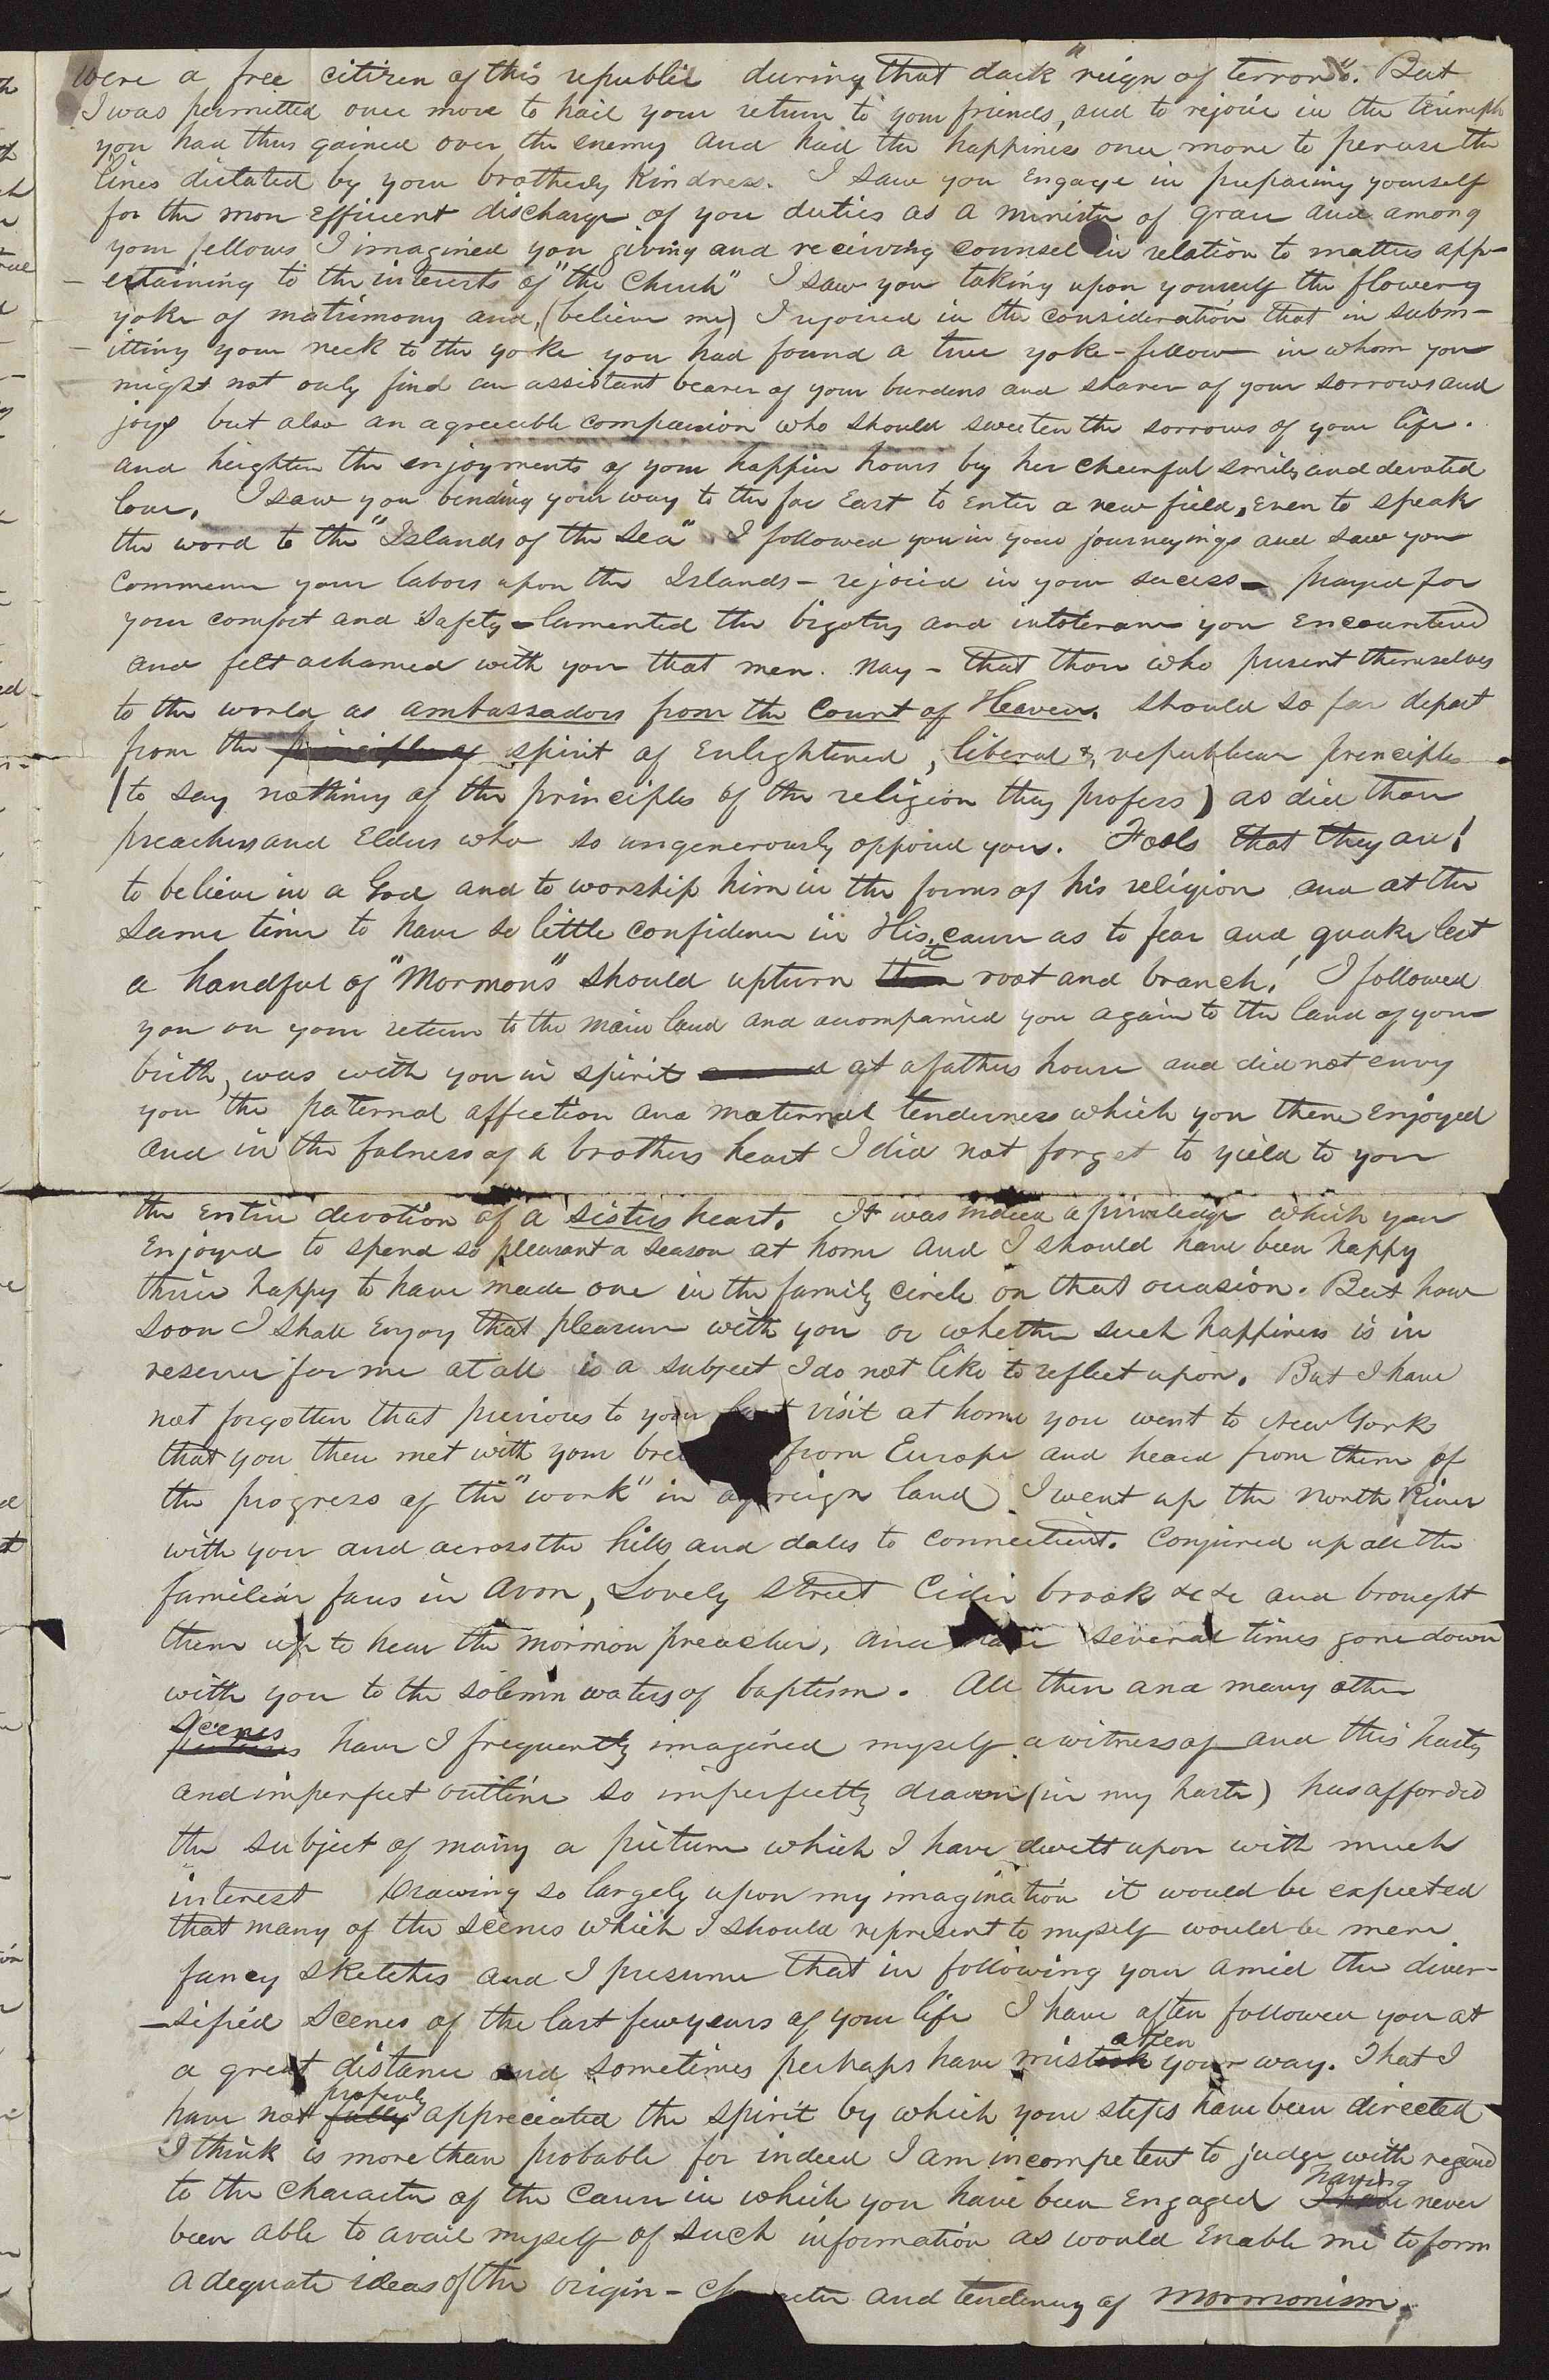 were a free citizen of this republic during that dark "reign of terror". But
I was permitted once more to hail your return to your friends, and to rejoice in the triumph
you had thus gained over the enemy and had the happiness once more to peruse the
lines dictated by your brotherly kindness. I saw you engage in preparing yourself
for the more efficient discharge of you duties as a minister of grace and among
your fellows I imagined you giving and receiving counsel in relation to matters app-
-ertaining to the interests of "the Church" I saw you taking upon yourself the flowery
yoke of matrimony and, (believe me) I rejoiced in the consideration that in subm-
-itting your neck to the yoke you had found a true yoke-fellow in whom you
might not only find an assistant bearer of your burdens and sharer of your sorrows and
joys but also an agreeable companion who should sweeten the sorrows of your life.
and heighten the enjoyments of your happier hours by her cheerful smiles and devoted
love. I saw you bending your way to the far East to enter a new field, even to speak
the word to the "Islands of the Sea". I followed you in your journeyings and saw you
commence your labors upon the Islands - rejoiced in your success - prayed for
your comfort and safety - lamented the bigotry and intolerance you encountered
and felt ashamed with you that men. nay - that those who present themselves
to the world as ambassadors from the Court of Heaven. should so far depart
from the principles of spirit of enlightened, liberal & republican principles
(to say nothing of the principles of the religion they profess) as did those
preachers and Elders who so ungenerously opposed you. Fools that they are!
to believe in a God and to worship him in the forms of his religion and at the
same time to have so little confidence in His cause as to fear and quake lest
a handful of "Mormons" should upturn it root and branch! I followed
you on your return to the main land and accompanied you again to the land of your
birth, was with you in spirit at a fathers house and did not envy
you the paternal affection and maternal tenderness which you there enjoyed
and in the fulness of a brothers heart I did not forget to yield to you
the entire devotion of a sisters heart. It was indeed a priviledge which you
enjoyed to spend so pleasant a season at home and I should have been happy
thrice happy to have made one in the family circle on that occasion. But how
soon I shall enjoy that pleasure with you or whether such happiness is in
reserve for me at all is a subject I do not like to reflect upon. But I have
not forgotten that previous to your last visit at home you went to New York
that you then met with your bre from Europe and heard from them of
the progress of the "work" in a foreign land I went up the North River
with you and across the hills and dales to Connecticut. Conjured up all the
familiar faces in Avon, Lovely Street Cider brook &c &c and brought
them up to hear the mormon preacher, and have several times gone down
with you to the solemn waters of baptism. All these and many other
scenes
pictures have I frequently imagined myself a witness of and this hasty
and imperfect outline so imperfectly drawn (in my haste) has afforded
the subject of many a picture which I have dwelt upon with much
interest Drawing so largely upon my imagination it would be expected
that many of the scenes which I should represent to myself would be mere
fancy sketches and I presume that in following your amid the diver-
-sified scenes of the last few years of your life I have often followed you at
a great distance and sometimes perhaps have mistaken your way. That I
properly
have not fully appreciated the spirit by which your steps have been directed
I think is more than probable for indeed I am incompetent to judge with regard
to the character of the cause in which you have been engaged having never
been able to avail myself of such information as would enable me to form
adequate ideas of the origin - character and tendency of mormonism.